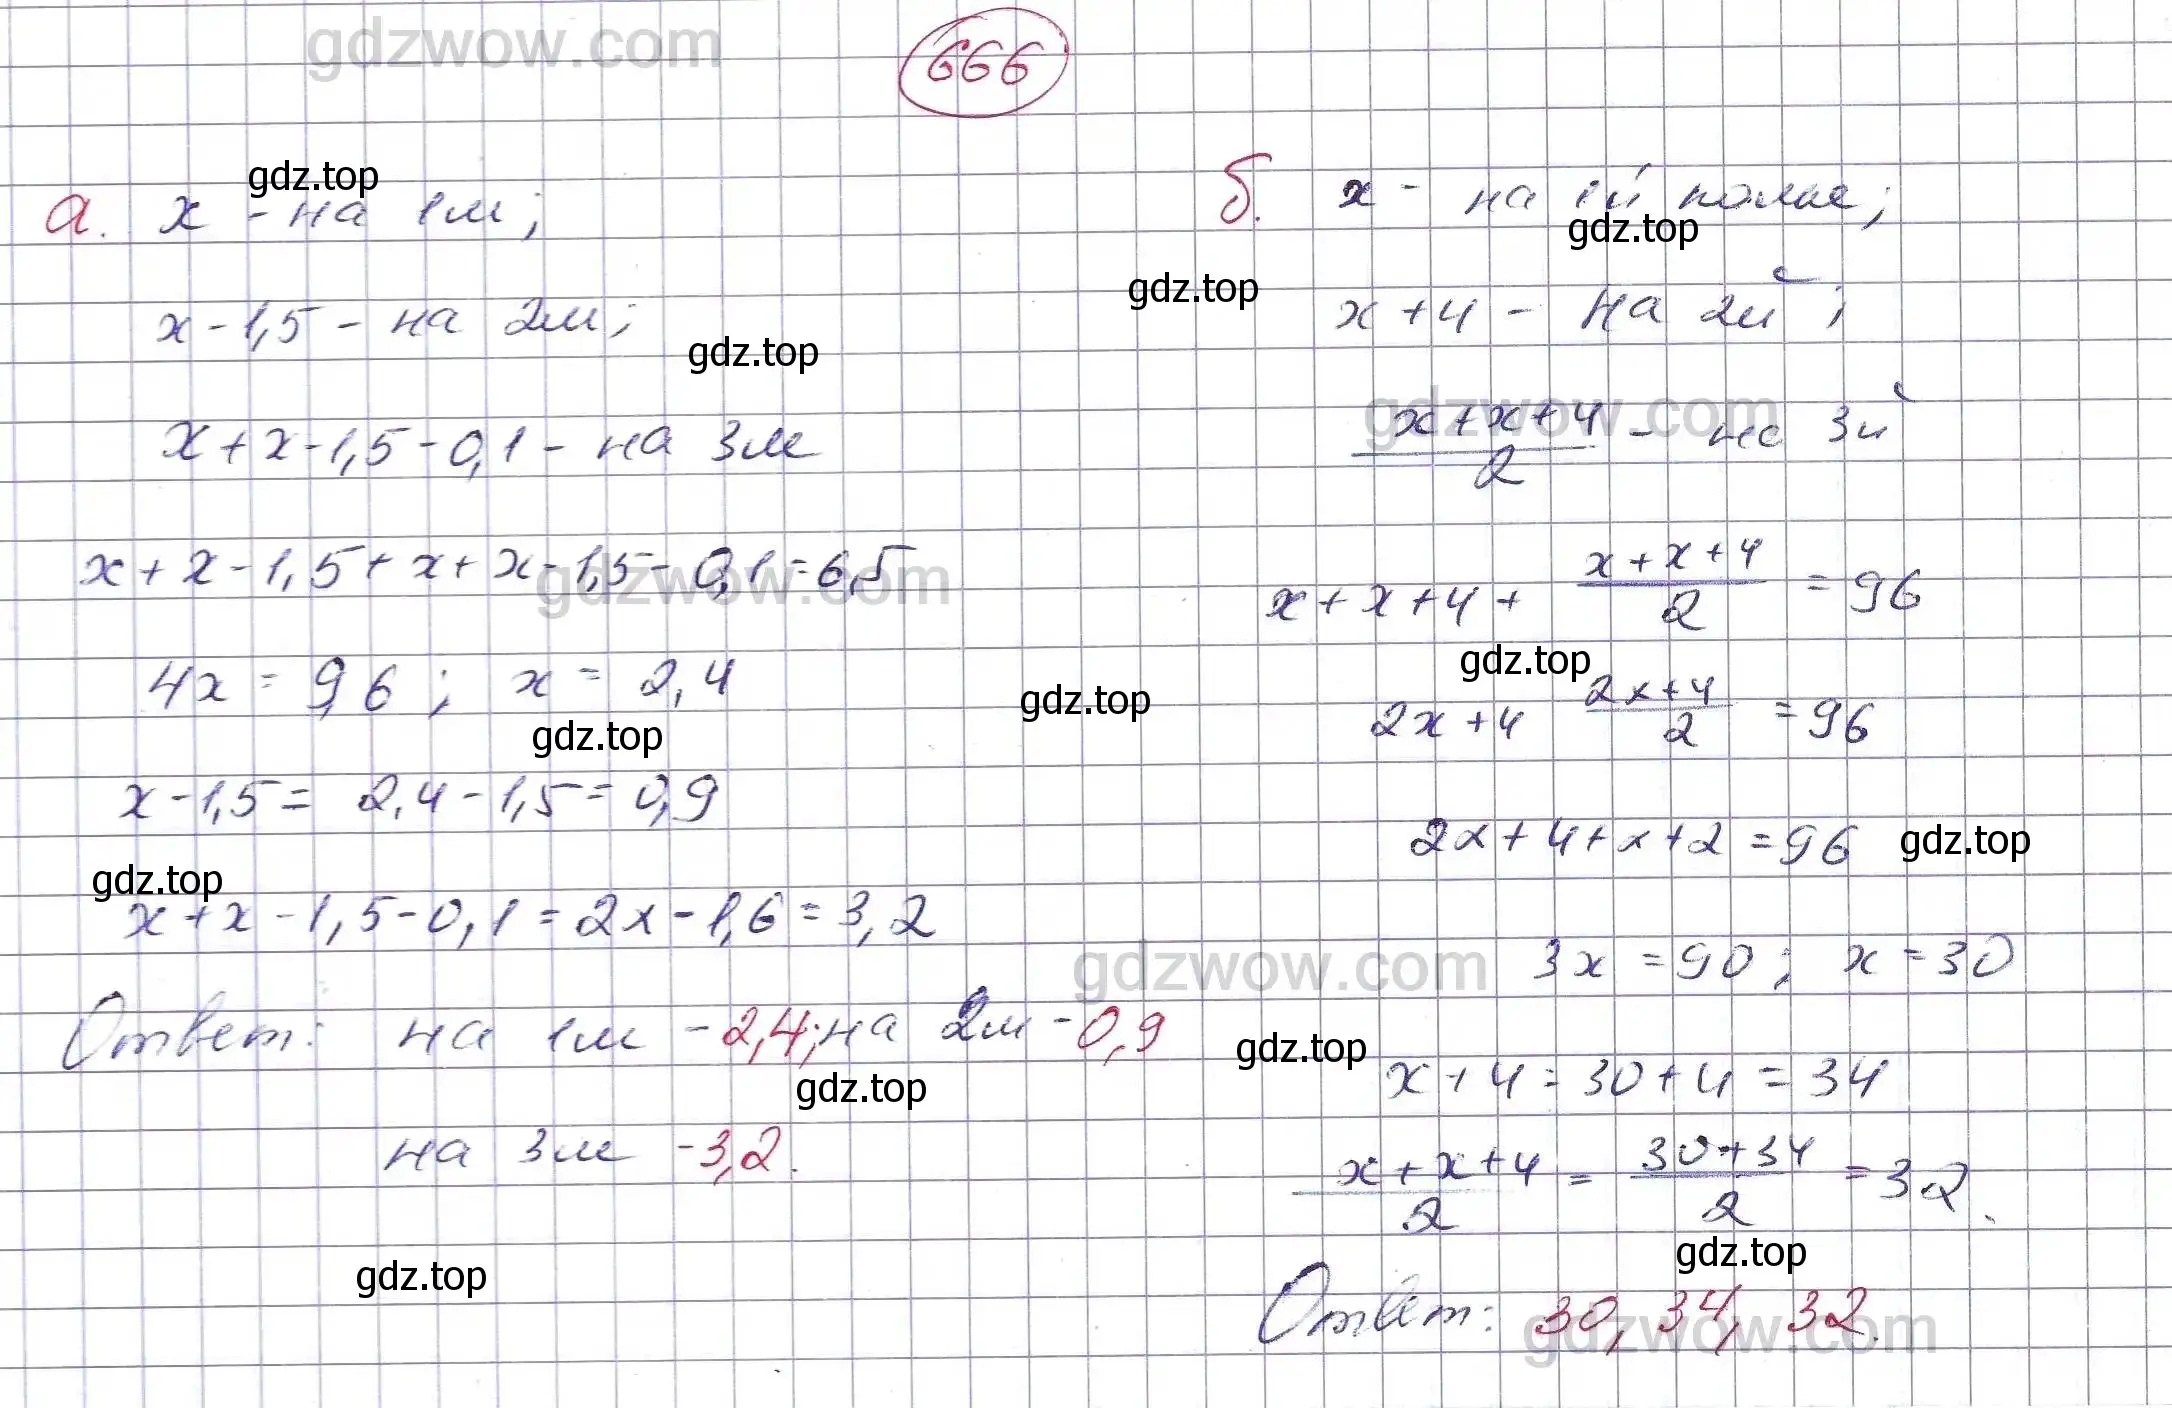 gdzwow.com
666
gdz.top
а. x - на 1м;
x - 1,5 - на 2м;
gdz.top
x + x - 1,5 - 0,1 - на 3м
x + x - 1,5 + x + x - 1,5 - 0,1 = 6,5
gdzwow.com
4x = 9,6 ; x = 2,4
gdz.top
gdz.top
x - 1,5 = 2,4 - 1,5 = 0,9
gdz.top
x + x - 1,5 - 0,1 = 2x - 1,6 = 3,2
Ответ: на 1м - 2,4; на 2м - 0,9
gdz.top
на 3м - 3,2.
gdz.top
б. x - на 1й полке;
gdz.top
gdz.top
x + 4 - на 2й ;
gdzwow.com
x + x + 4 - на 3й
2
x + x + 4 + x + x + 4 = 96
2
gdz.top
2x + 4 2x + 4 = 96
2
2x + 4 + x + 2 = 96
gdz.top
gdzwow.com
3x = 90 ; x = 30
gdz.top
x + 4 = 30 + 4 = 34
x + x + 4 = 30 + 34 = 32.
2 2
gdz.top
Ответ: 30, 34, 32.
gdzwow.com